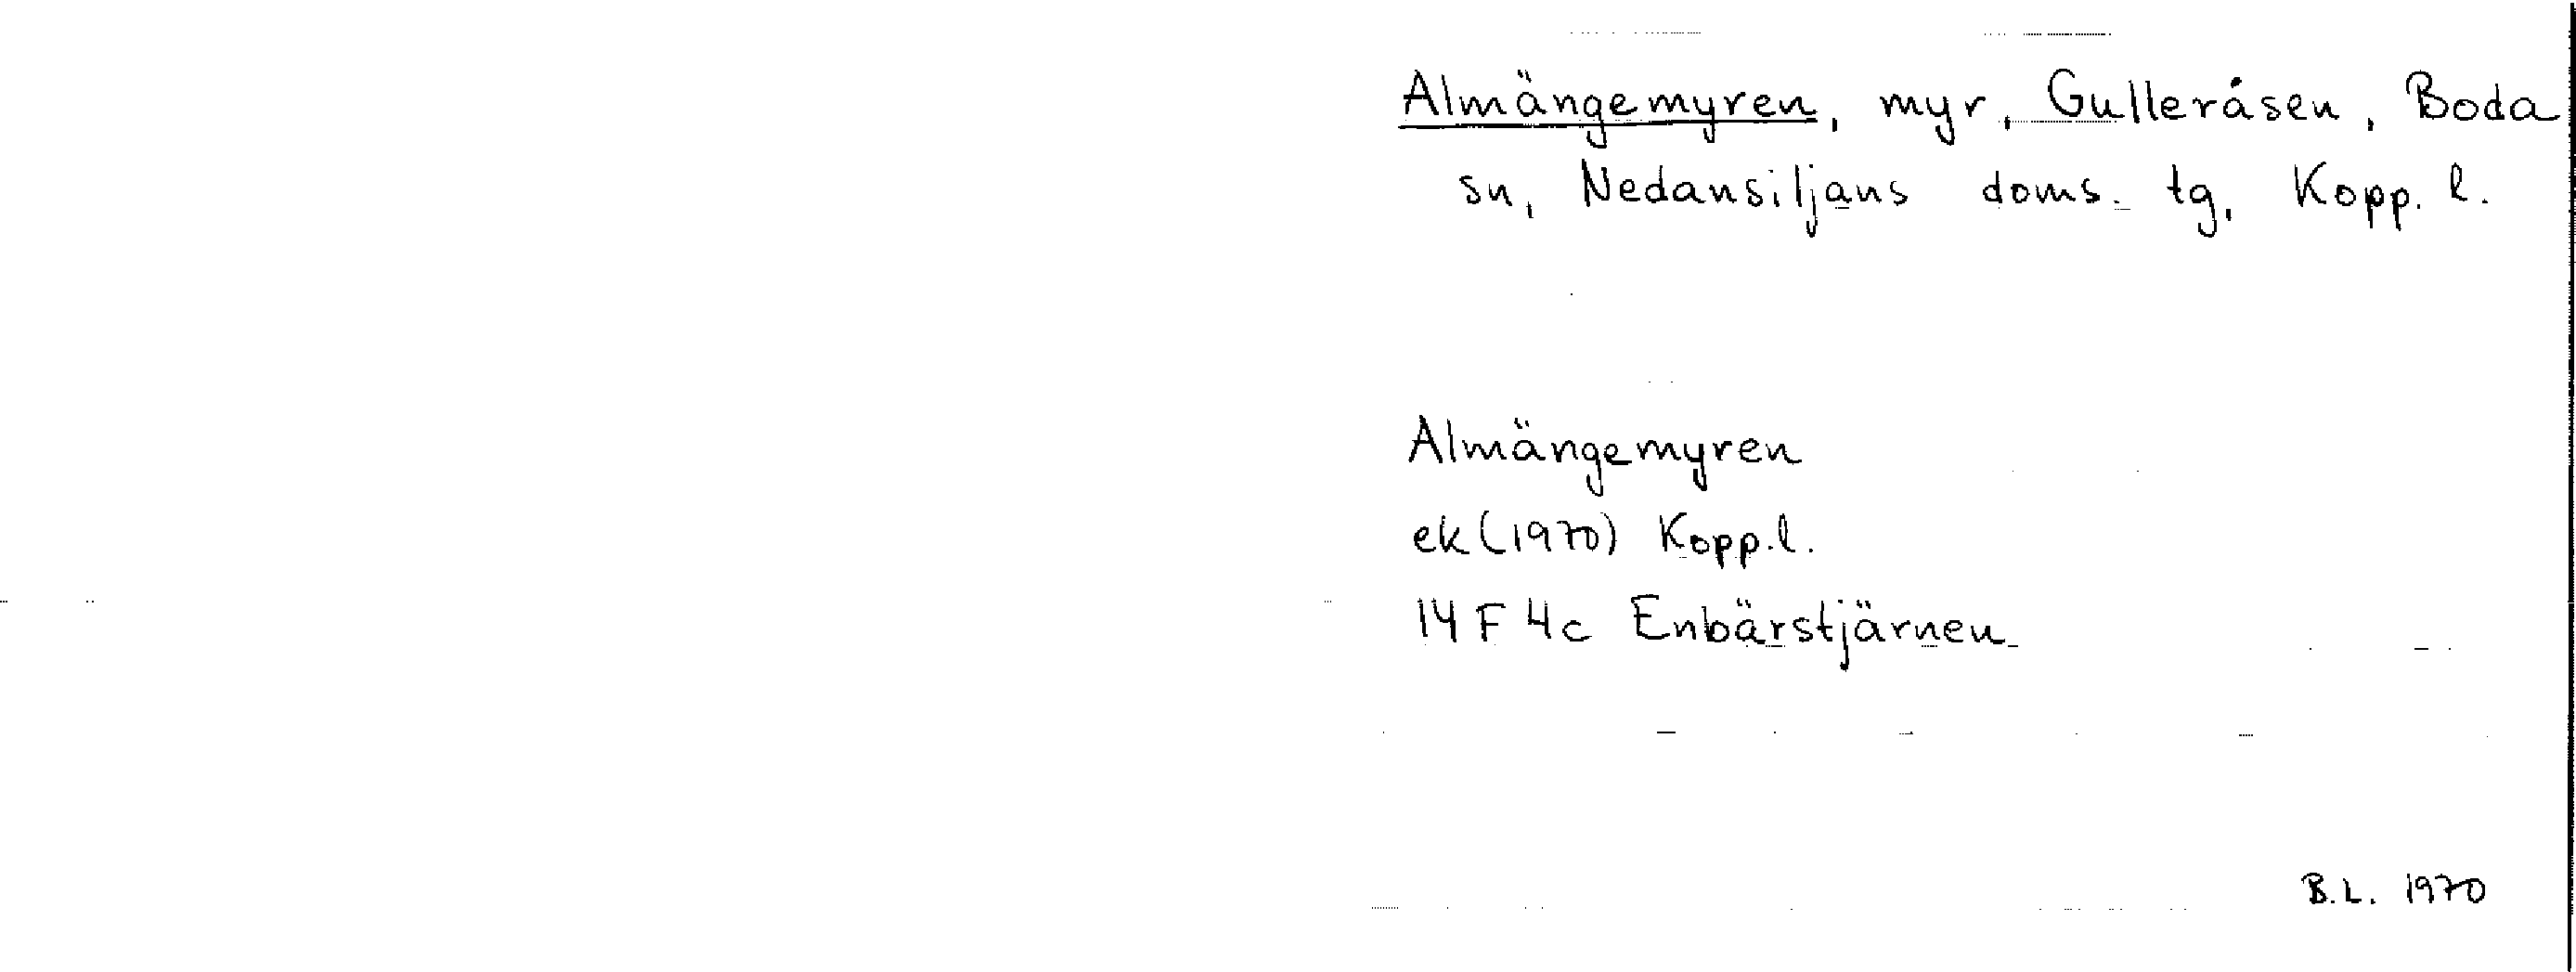 Almängemyren, myr, Gulleråsen, Boda
sn, Nedansiljans doms. tg, Kopp. l.
Almängemyren
ek (1970) Kopp.l.
14 F 4c Enbärstjärnen
B.L. 1970